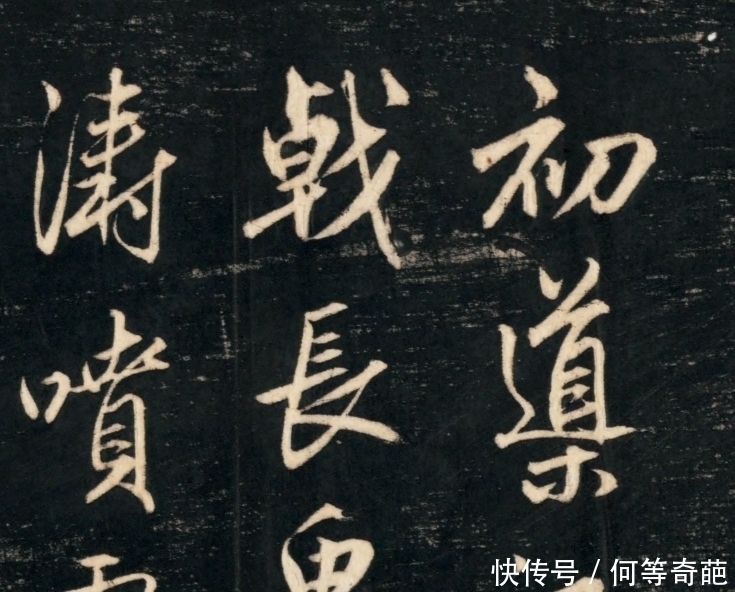 初導
戟長
濤噴
快传号 / 何等奇葩